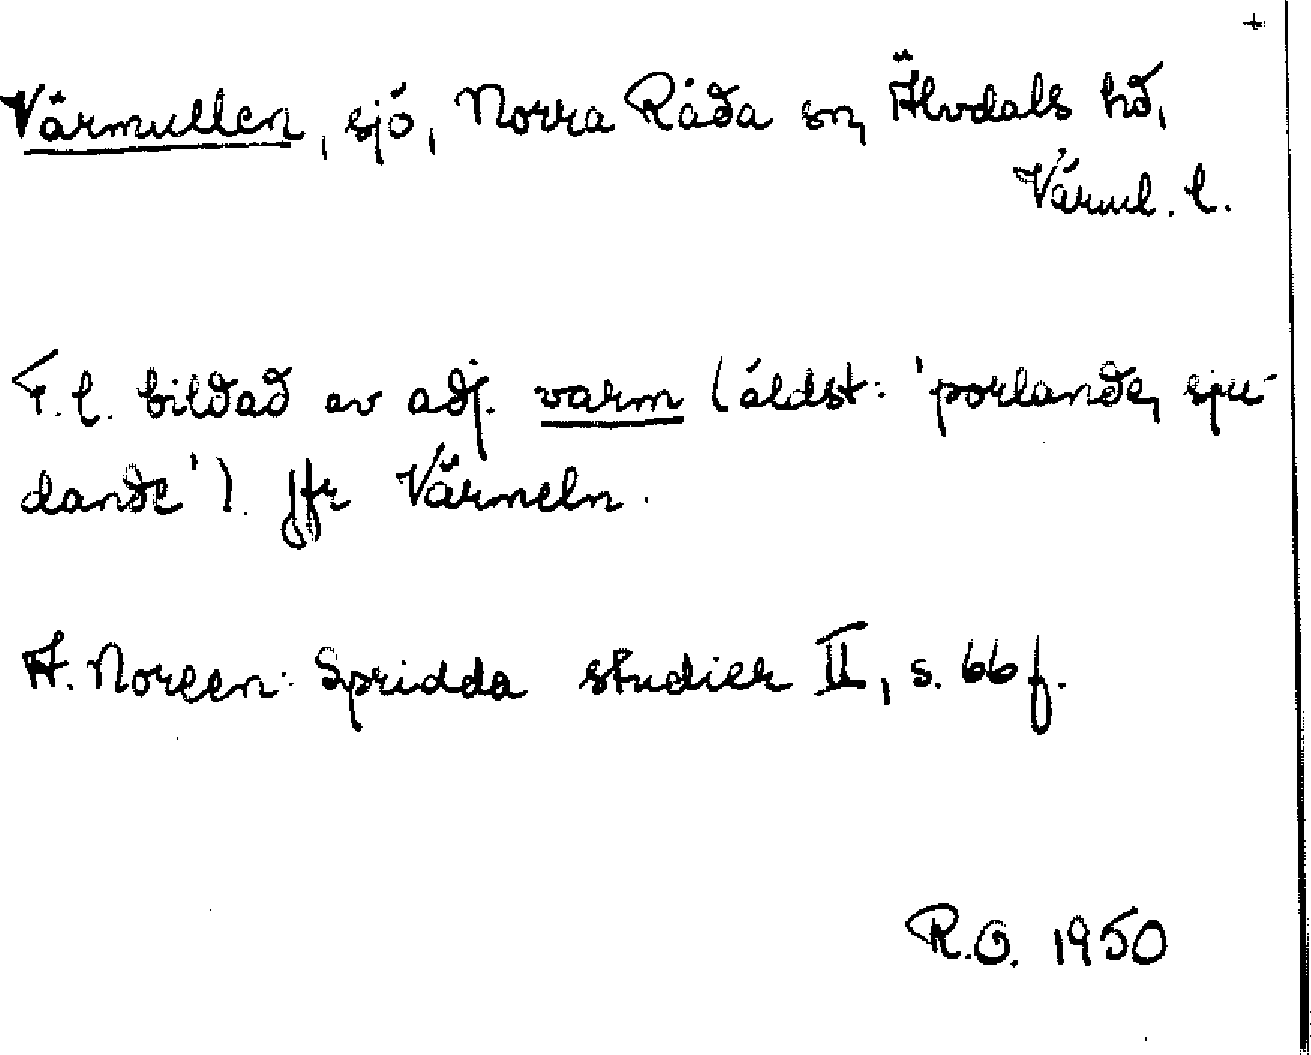 +
Värmullen, sjö, Norra Råda sn, Älvdals hd,
Värml. l.
F.l. bildad av adj. varm (äldst: 'porlande, sju-
dande'). Jfr Värmeln.
A. Noreen: Spridda studier II, s. 66 f.
R.O. 1950